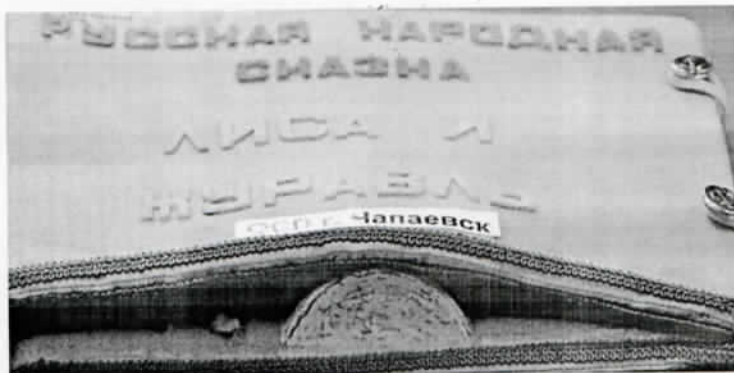 РУССКАЯ НАРОДНАЯ
СКАЗКА
ЛИСА И
ЖУРАВЛЬ
г. Чапаевск